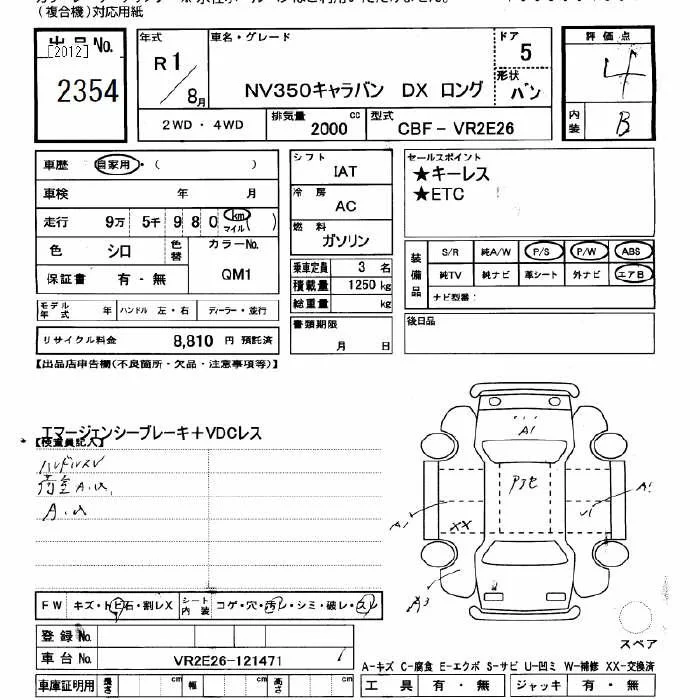 (複合機)対応用紙
出品No.
[2012]
2354
年式
R1/8月
車名・グレード
NV350キャラバン DX ロング
ドア
5
形状
バン
評価点
4
内装
B
2WD・4WD
排気量 2000 cc
型式 CBF-VR2E26
車歴 自家用・( )
車検 年 月
走行 9万 5千 980 km マイル ( )
色 シロ 色替
カラーNo. QM1
保証書 有・無
モデル年式 年 ハンドル 左・右 ディーラー・並行
リサイクル料金 8,810 円 預託済
シフト
IAT
冷房
AC
燃料
ガソリン
乗車定員 3 名
積載量 1250 kg
総重量 kg
書類期限
月 日
セールスポイント
★キーレス
★ETC
装備品
S/R 純A/W P/S P/W ABS
純TV 純ナビ 革シート 外ナビ エアB
ナビ型番:
後日品
【出品店申告欄(不良箇所・欠品・注意事項等)】
エマージェンシーブレーキ+VDCレス
【検査員記入】
ハンドルスレ
A1
アカセ
A1
A1
XX
A3
FW キズ・トビ石・割レX シート内装 コゲ・穴・汚レ・シミ・破レ・スレ
登録No.
車台No. VR2E26-121471
車庫証明用 長さ cm 幅 cm 高さ cm
スペア
A-キズ C-腐食 E-エクボ S-サビ U-凹ミ W-補修 XX-交換済
工具 有・無 ジャッキ 有・無